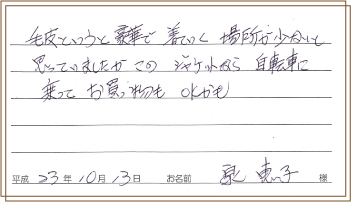 毛皮というと豪華で着ていく場所が少ないと
思っていましたがこのジャケットなら自転車に
乗ってお買い物もOKかも
平成23年10月13日 お名前 泉 恵子 様